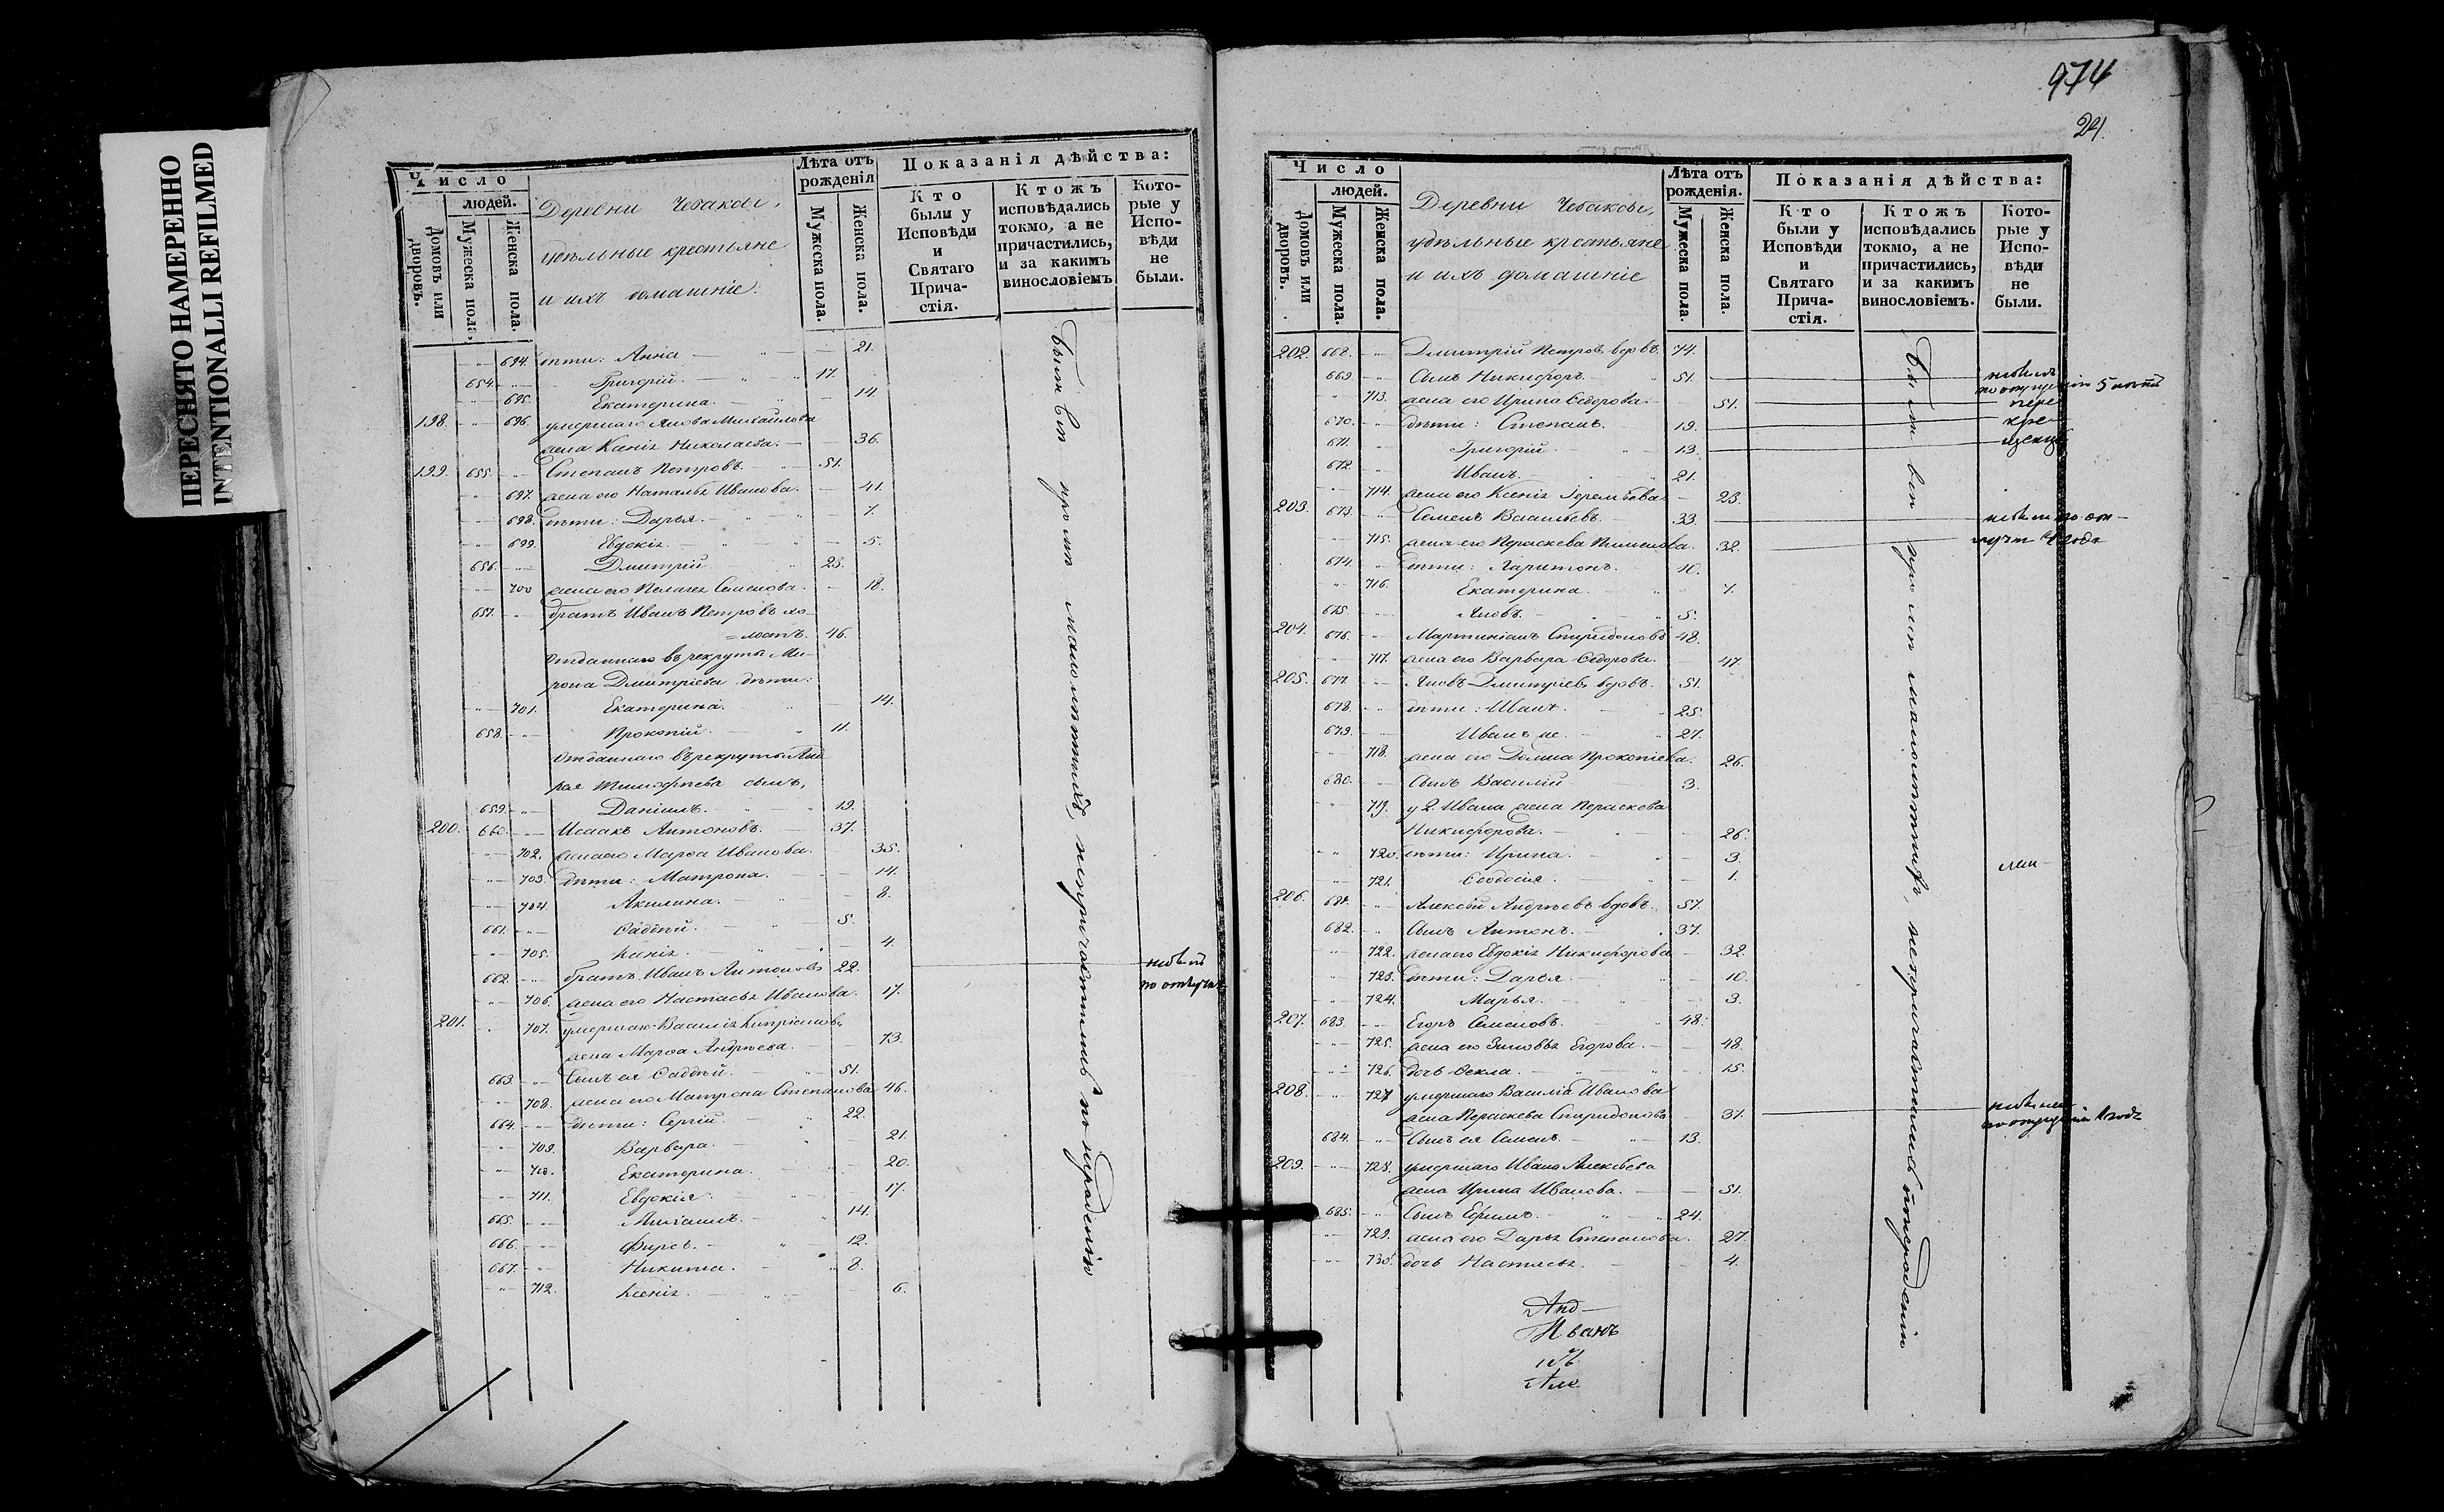 ПЕРЕСНЯТО НАМЕРЕННО
INTENTIONALLI REFILMED
Число
людей.
Домовъ или дворовъ.
Мужеска пола,
Женска пола.
Деревни Чебаксы,
удѣльные крестьяне
и ихъ домашніе.
Лѣта отъ рожденія
Мужеска пола.
Женска пола.
Показанія дѣйства:
Кто были у Исповѣди и Святаго Прича-стія.
Ктожъ исповѣдались токмо, а не причастились, и за какимъ винословіемъ
Кото-рые у Испо-вѣди не были.
694. дѣти: Анна 21.
654. Григорій. 17.
695. Екатерина. 14.
198. 696. умершаго Якова Михайлова
жена Ксенія Николаева. 36.
199. 655. Степанъ Петровъ. 51.
697. жена его Наталья Иванова. 41.
698. дѣти: Дарья. 7.
699. Евдокія. 5.
656. Дмитрій 23.
700 жена его Пелагея Семенова. 18.
657. братъ Иванъ Петровъ хо-
=лостъ. 46.
Отданнаго въ рекруты Ми-
рона Дмитріева дѣти:
701. Екатерина. 14.
658. Прокопій. 11.
Отданнаго въ рекруты Анд
рея Тимофѣева сынъ,
659. Даніилъ. 19.
200. 660. Исаакъ Антоновъ. 37.
702. жена его Марѳа Иванова. 35.
703. дѣти: Матрона. 14.
704. Акилина. 8.
661. Ѳаддѣй. 5.
705. Ксенія. 4.
662. братъ Иванъ Антоновъ 22.
706. жена его Настасья Иванова. 17.
201. 707. умершаго Василія Кипріянова
жена Марѳа Андреева. 73.
663. Сынъ ея Ѳаддѣй. 51.
708. жена его Матрона Степанова 46.
664. дѣти: Сергій. 22.
709. Варвара. 21.
710. Екатерина. 20.
711. Евдокія. 17.
665. Михаилъ. 14.
666. Фирсъ. 12.
667. Никита. 8.
712. Ксенія. 6.
были вси кромѣ малолѣтнихъ, непричастились по нерадѣнію
небылъ
по отлучкѣ
974
24.
Число
людей.
Домовъ или дворовъ.
Мужеска пола.
Женска пола.
Деревни Чебаксы,
удѣльные крестьяне
и ихъ домашніе
Лѣта отъ рожденія.
Мужеска пола.
Женска пола.
Показанія дѣйства:
Кто были у Исповѣди и Святаго Прича-стія.
Ктожъ исповѣдались токмо, а не причастились, и за какимъ винословіемъ.
Кото-рые у Испо-вѣди не были.
202. 668. Дмитрій Петровъ вдовъ. 74.
669. Сынъ Никифоръ. 51.
713. жена его Ирина Ѳедорова. 51.
670. дѣти: Степанъ. 19.
671. Григорій. 13.
672. Иванъ. 21.
714. жена его Ксенія 23.
203. 673. Семенъ Васильевъ. 33.
715. жена его Параскева Пименова. 32.
674. дѣти: Харитонъ. 10.
716. Екатерина. 7.
675 Яковъ. 5.
204. 676. Мартиніанъ Спиридоновъ 48.
717. жена его Варвара Ѳедорова. 47.
205. 677. Яковъ Дмитріевъ вдовъ. 51.
678. дѣти: Иванъ. 25.
679. Иванъ же. 27.
718. жена его Домна Прокопіева. 26.
680. Сынъ Василій 3.
719. у 2. Ивана жена Параскева
Никифорова. 26.
720. дѣти: Ирина. 3.
721. Ѳеодосія. 1.
206. 681. Алексѣй Андреевъ вдовъ. 57.
682. Сынъ Антонъ. 37.
722. жена его Евдокія Никифорова 32.
723. дѣти: Дарья. 10.
724. Марья. 3.
207. 683. Егоръ Семеновъ. 48.
725. жена его Зиновья Егорова. 48.
726. дочь Ѳекла. 15.
208. 727 умершаго Василія Иванова
жена Параскева Спиридонова 37.
684. Сынъ ея Семенъ. 13.
209. 728. умершаго Ивана Алексѣева
жена Ирина Иванова. 51.
685. Сынъ Ефимъ. 24.
729. жена его Дарья Степанова. 27.
730. дочь Настасья. 4.
были вси кромѣ малолѣтнихъ, непричастились по нерадѣнію
Иванъ